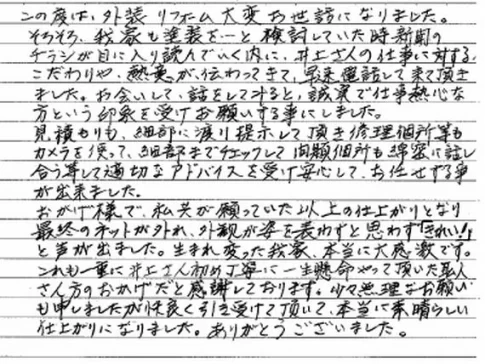 この度は、外装リフォーム大変お世話になりました。
そろそろ、我家も塗装を…と検討していた時新聞の
チラシが目に入り読んでいく内に、井上さんの仕事に対する
こだわりや、熱意が伝わってきて、早速電話して来て頂き
ました。お会いして、話をしてみると、誠実で仕事熱心な
方という印象を受けお願いする事にしました。
見積もりも、細部に渡り提示して頂き修理個所等も
カメラを使って、細部までチェックして問題個所も綿密に話し
合う等して適切なアドバイスを受け安心して、お任せする事
が出来ました。
おかげ様で、私共が願っていた以上の仕上がりとなり
最終のネットが外れ、外観が姿を表わすと思わず「きれい!」
と声が出ました。生まれ変った我家、本当に大感激です。
これも一重に井上さん初め丁寧に一生懸命やって頂いた職人
さん方のおかげだと感謝しております。少々無理なお願い
も申しましたが快良く引き受けて頂いて、本当に素晴らしい
仕上がりになりました。ありがとうございました。